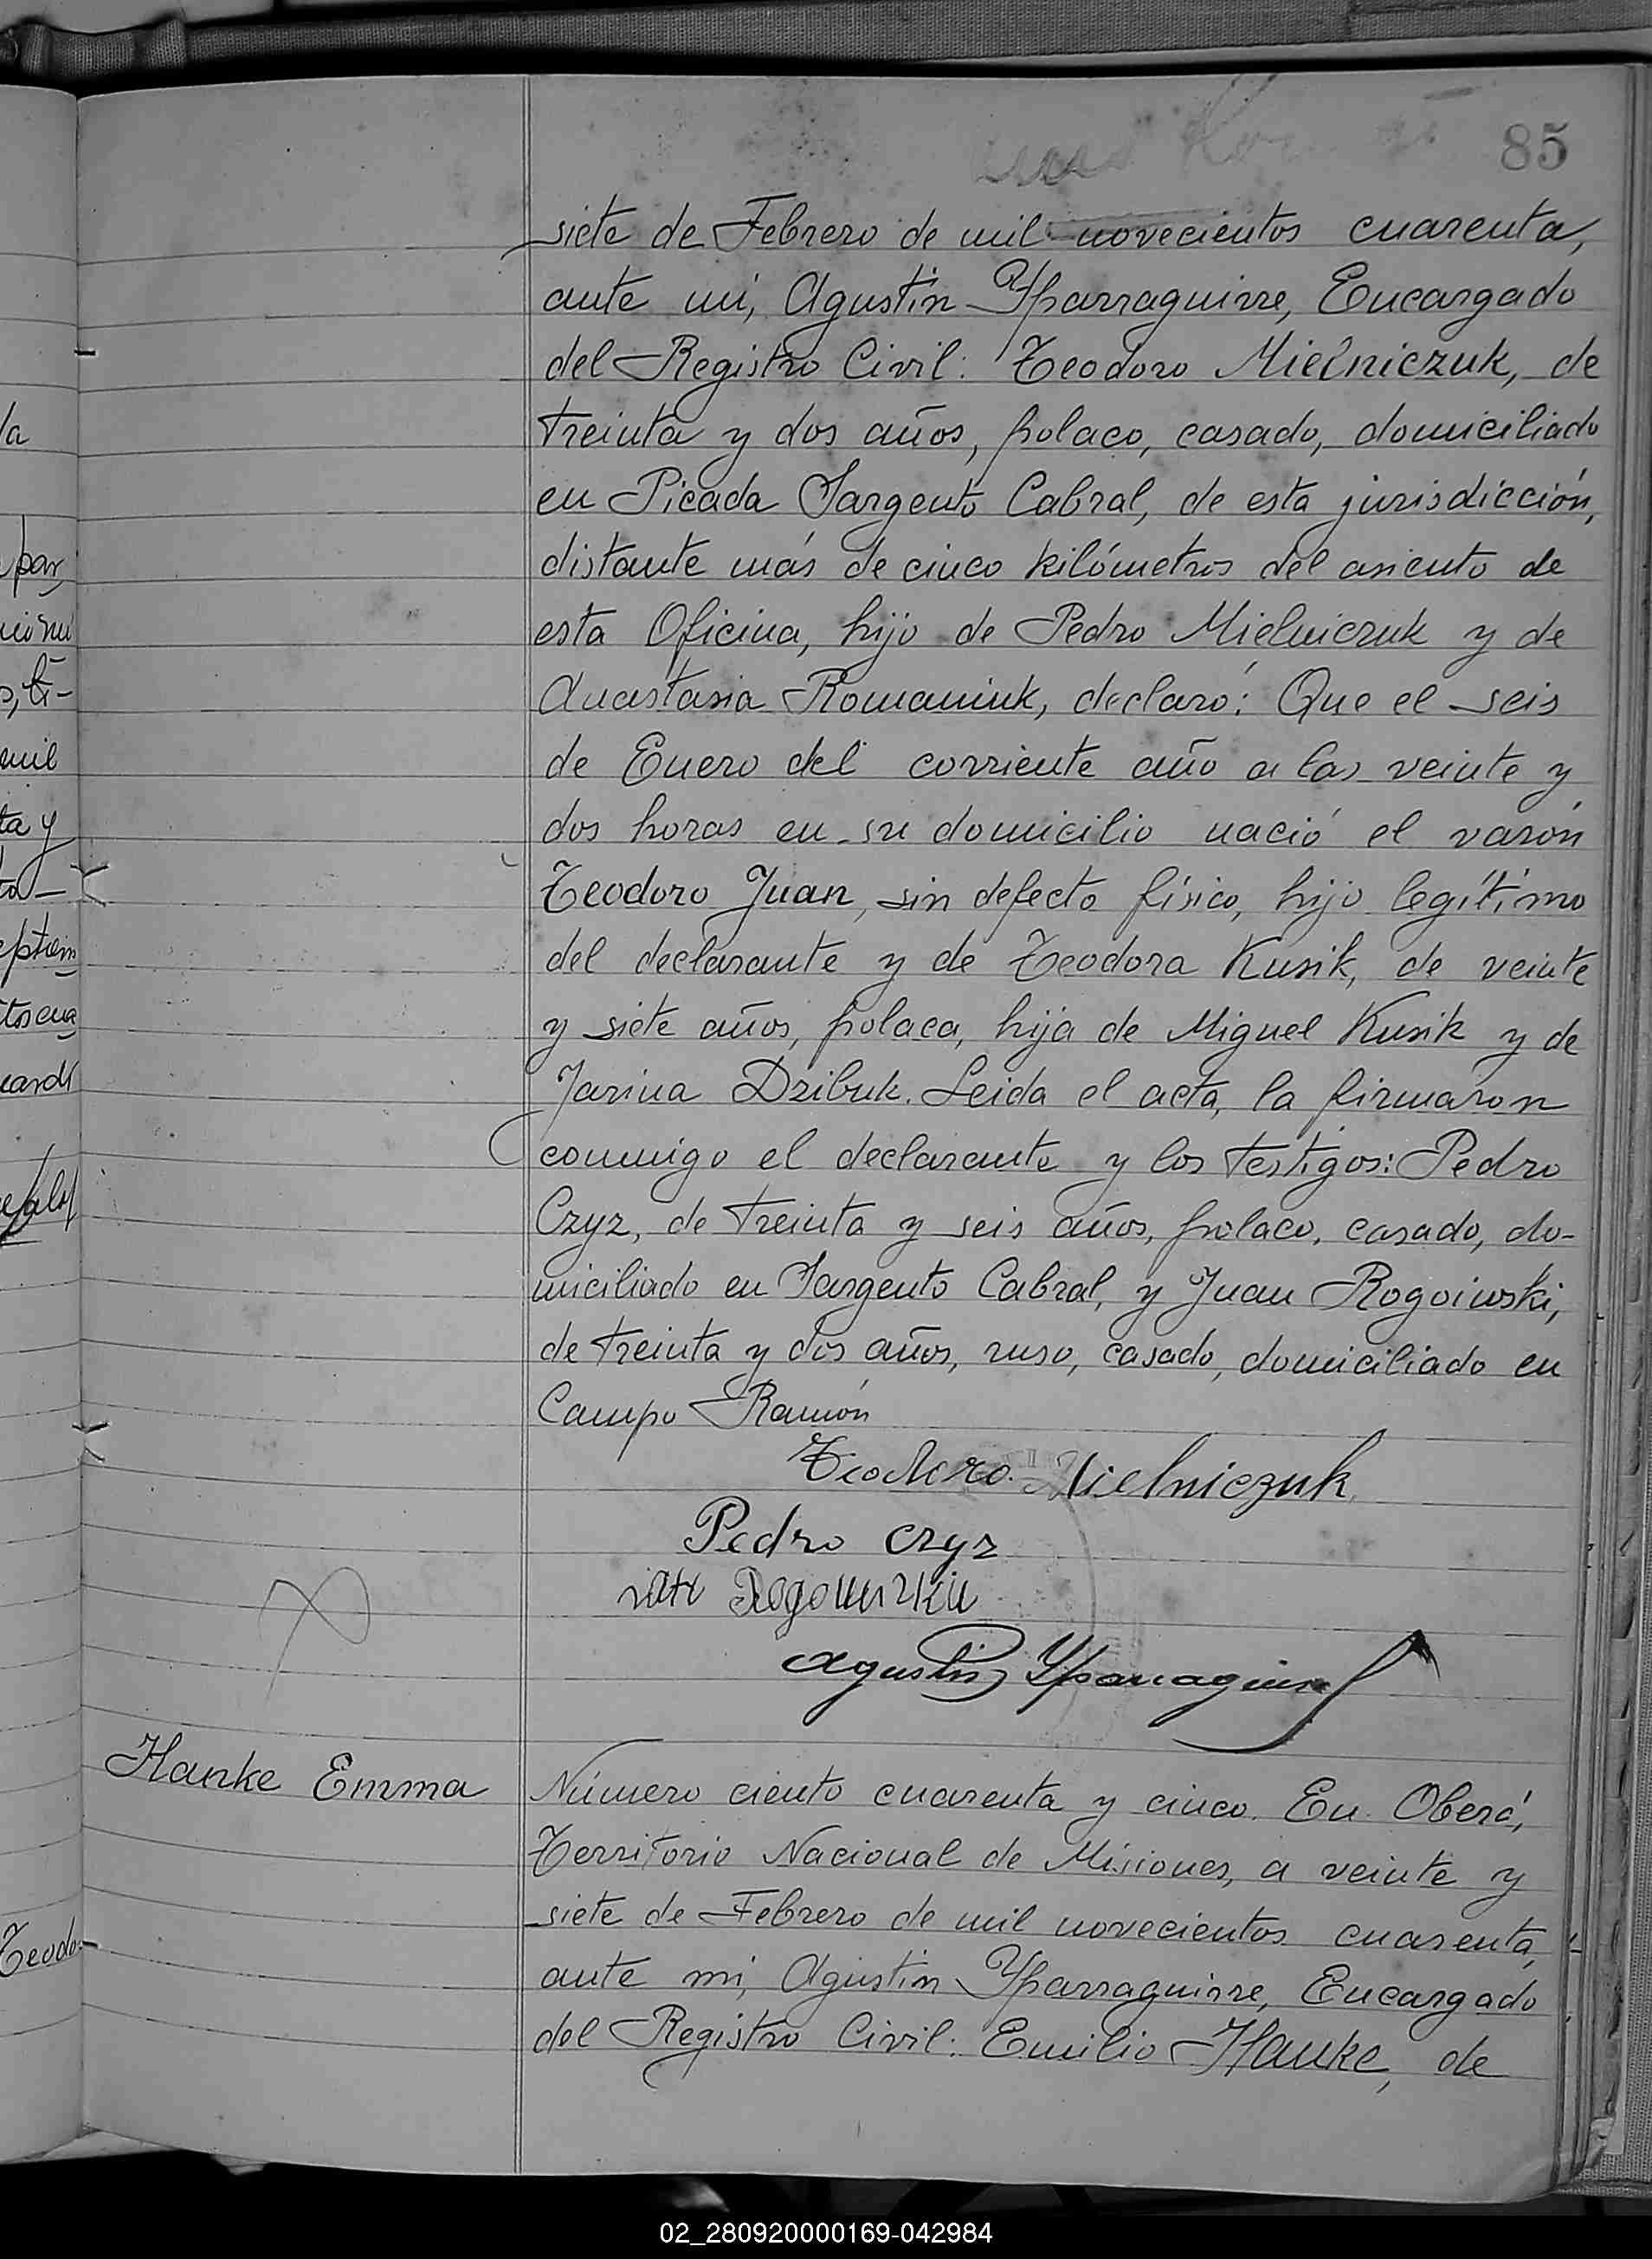 85
siete de Febrero de mil novecientos cuarenta,
ante mi, Agustín Yparraguirre, Encargado
del Registro Civil: Teodoro Mielniczuk, de
treinta y dos años, polaco, casado, domiciliado
en Picada Sargento Cabral, de esta jurisdicción,
distante más de cinco kilómetros del asiento de
esta Oficina, hijo de Pedro Mielniczuk y de
Anastasia Romaniuk, declaró: Que el seis
de Enero del corriente año a las veinte y
dos horas en su domicilio nació el varón
Teodoro Juan, sin defecto físico, hijo legítimo
del declarante y de Teodora Kusik, de veinte
y siete años, polaca, hija de Miguel Kusik y de
Jarina Dzibuk. Leida el acta, la firmaron
conmigo el declarante y los testigos: Pedro
Czyz, de treinta y seis años, polaco, casado, do-
miciliado en Sargento Cabral, y Juan Rogoiwski,
de treinta y dos años, ruso, casado, domiciliado en
Campo Ramón
Teodoro Mielniczuk
Pedro Czyz
Agustin Yparraguirre
Hanke Emma
Número ciento cuarenta y cinco. En Oberá,
Territorio Nacional de Misiones, a veinte y
siete de Febrero de mil novecientos cuarenta,
ante mi, Agustín Yparraguirre, Encargado
del Registro Civil: Emilio Hanke, de
02_280920000169-042984